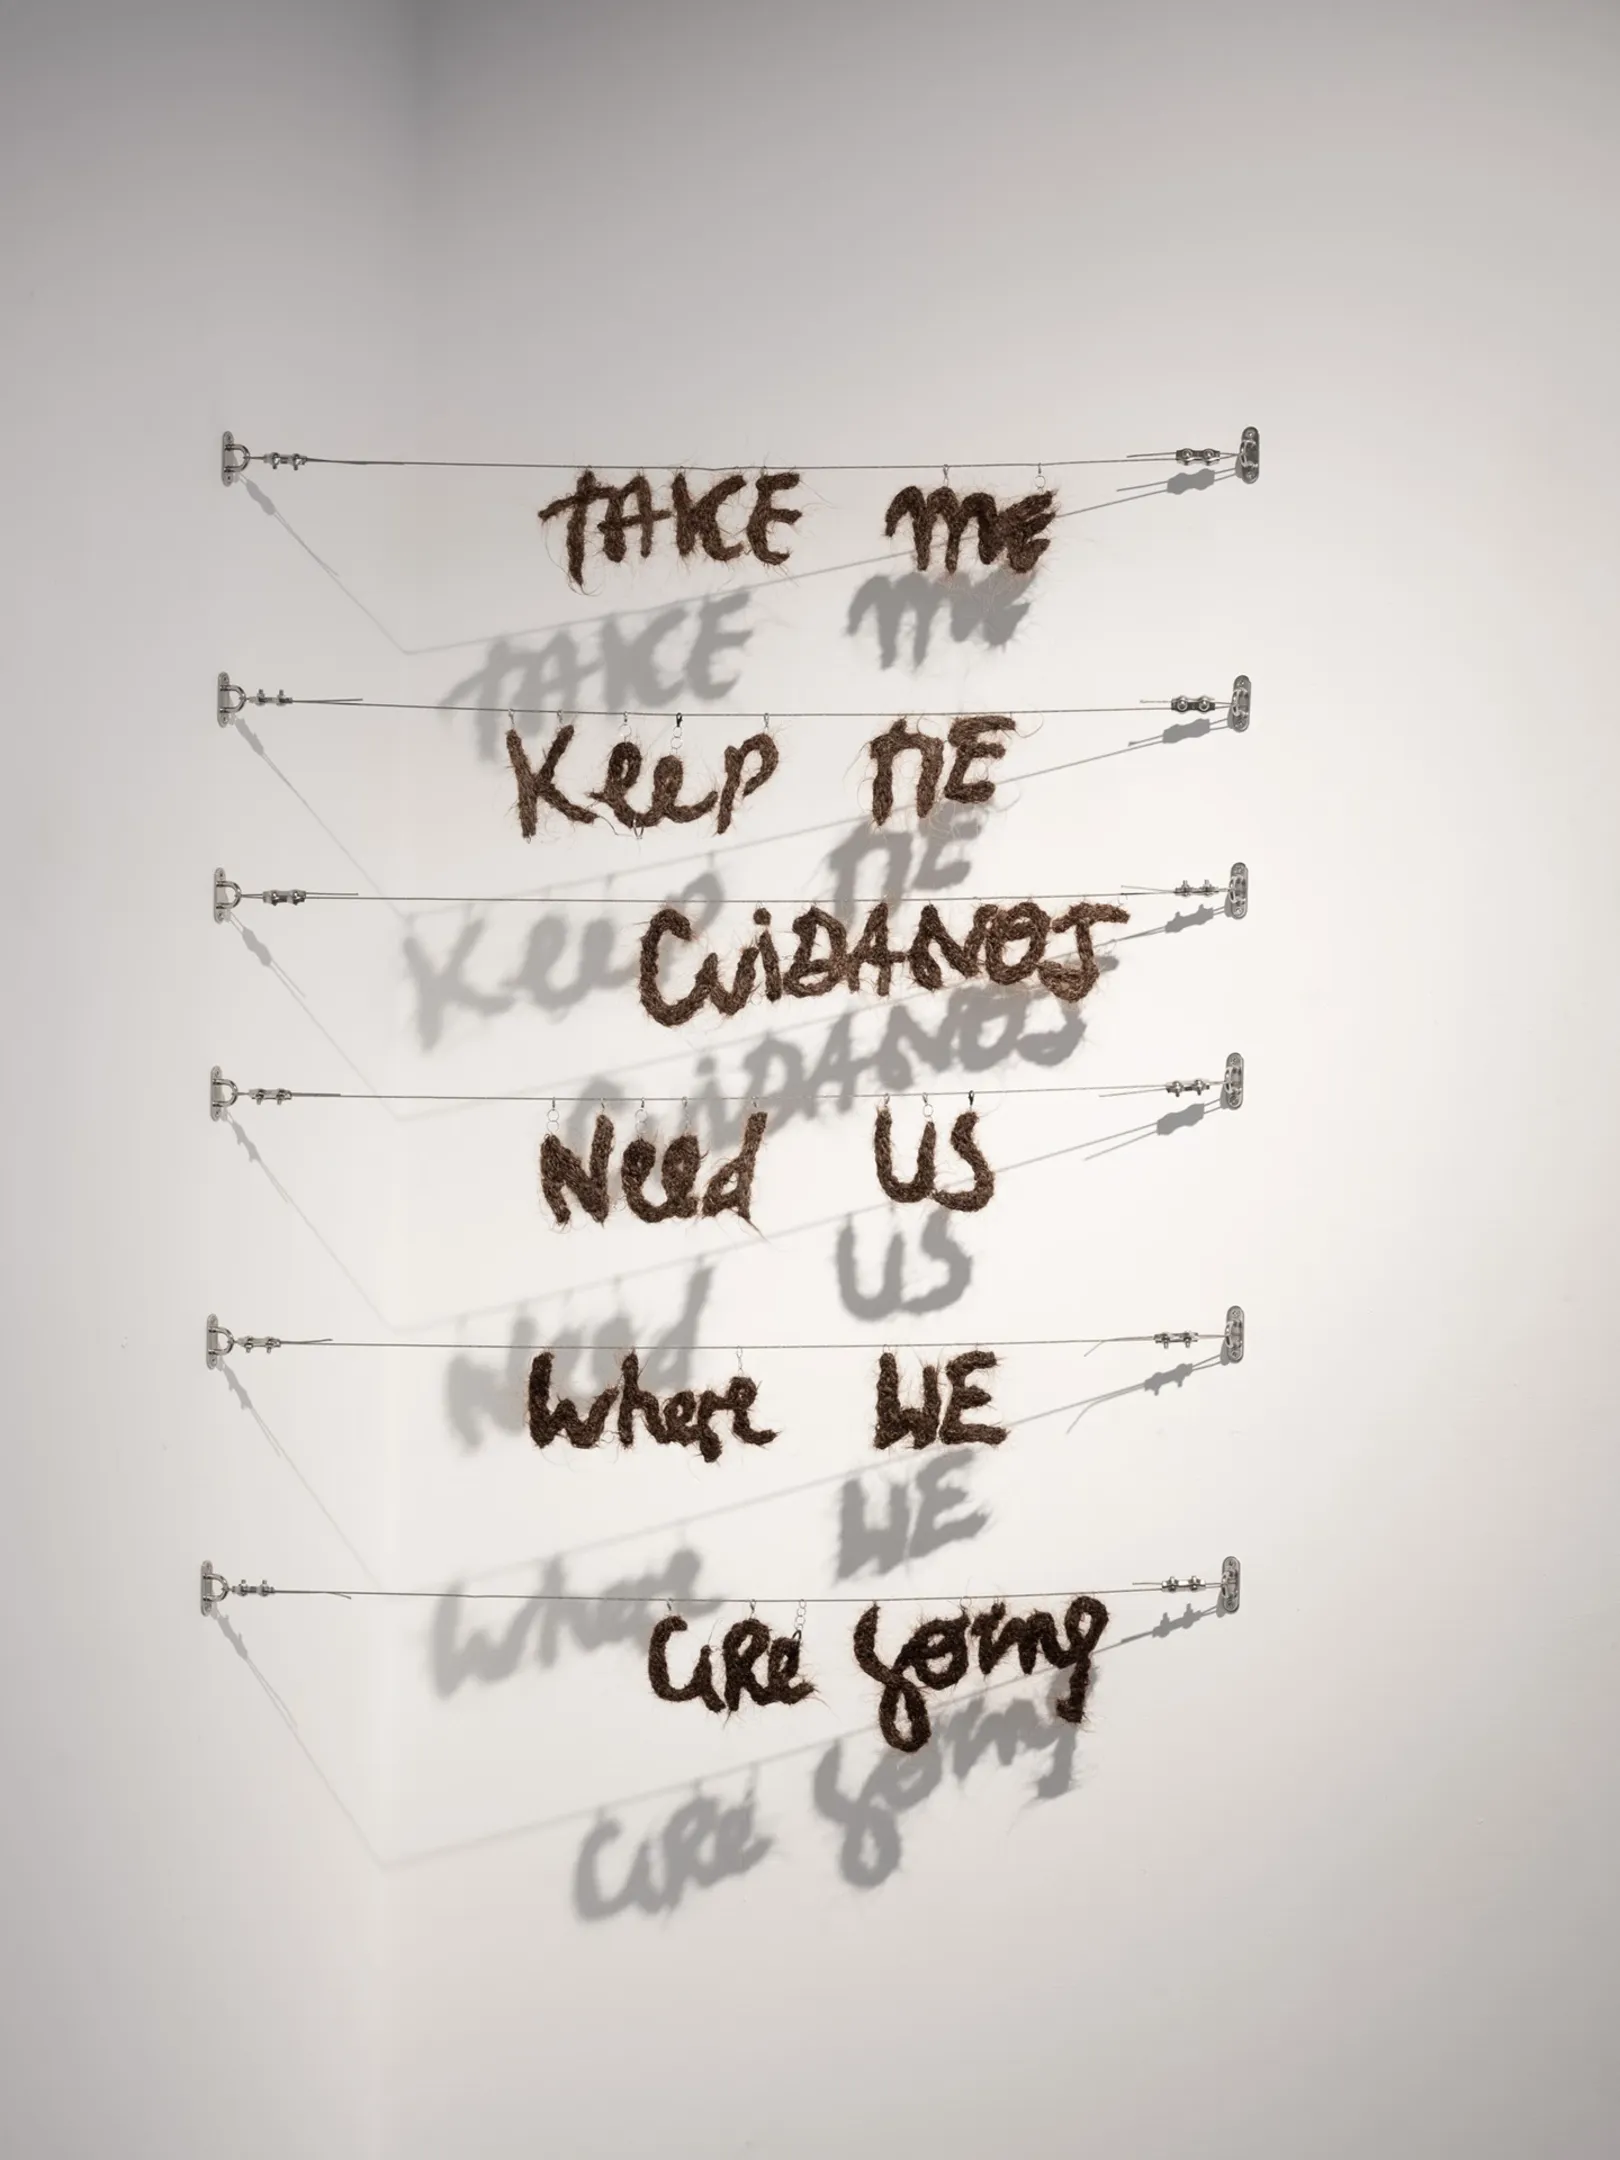 TAKE me
Keep ME
CuiDANOS
Need US
Where WE
are going